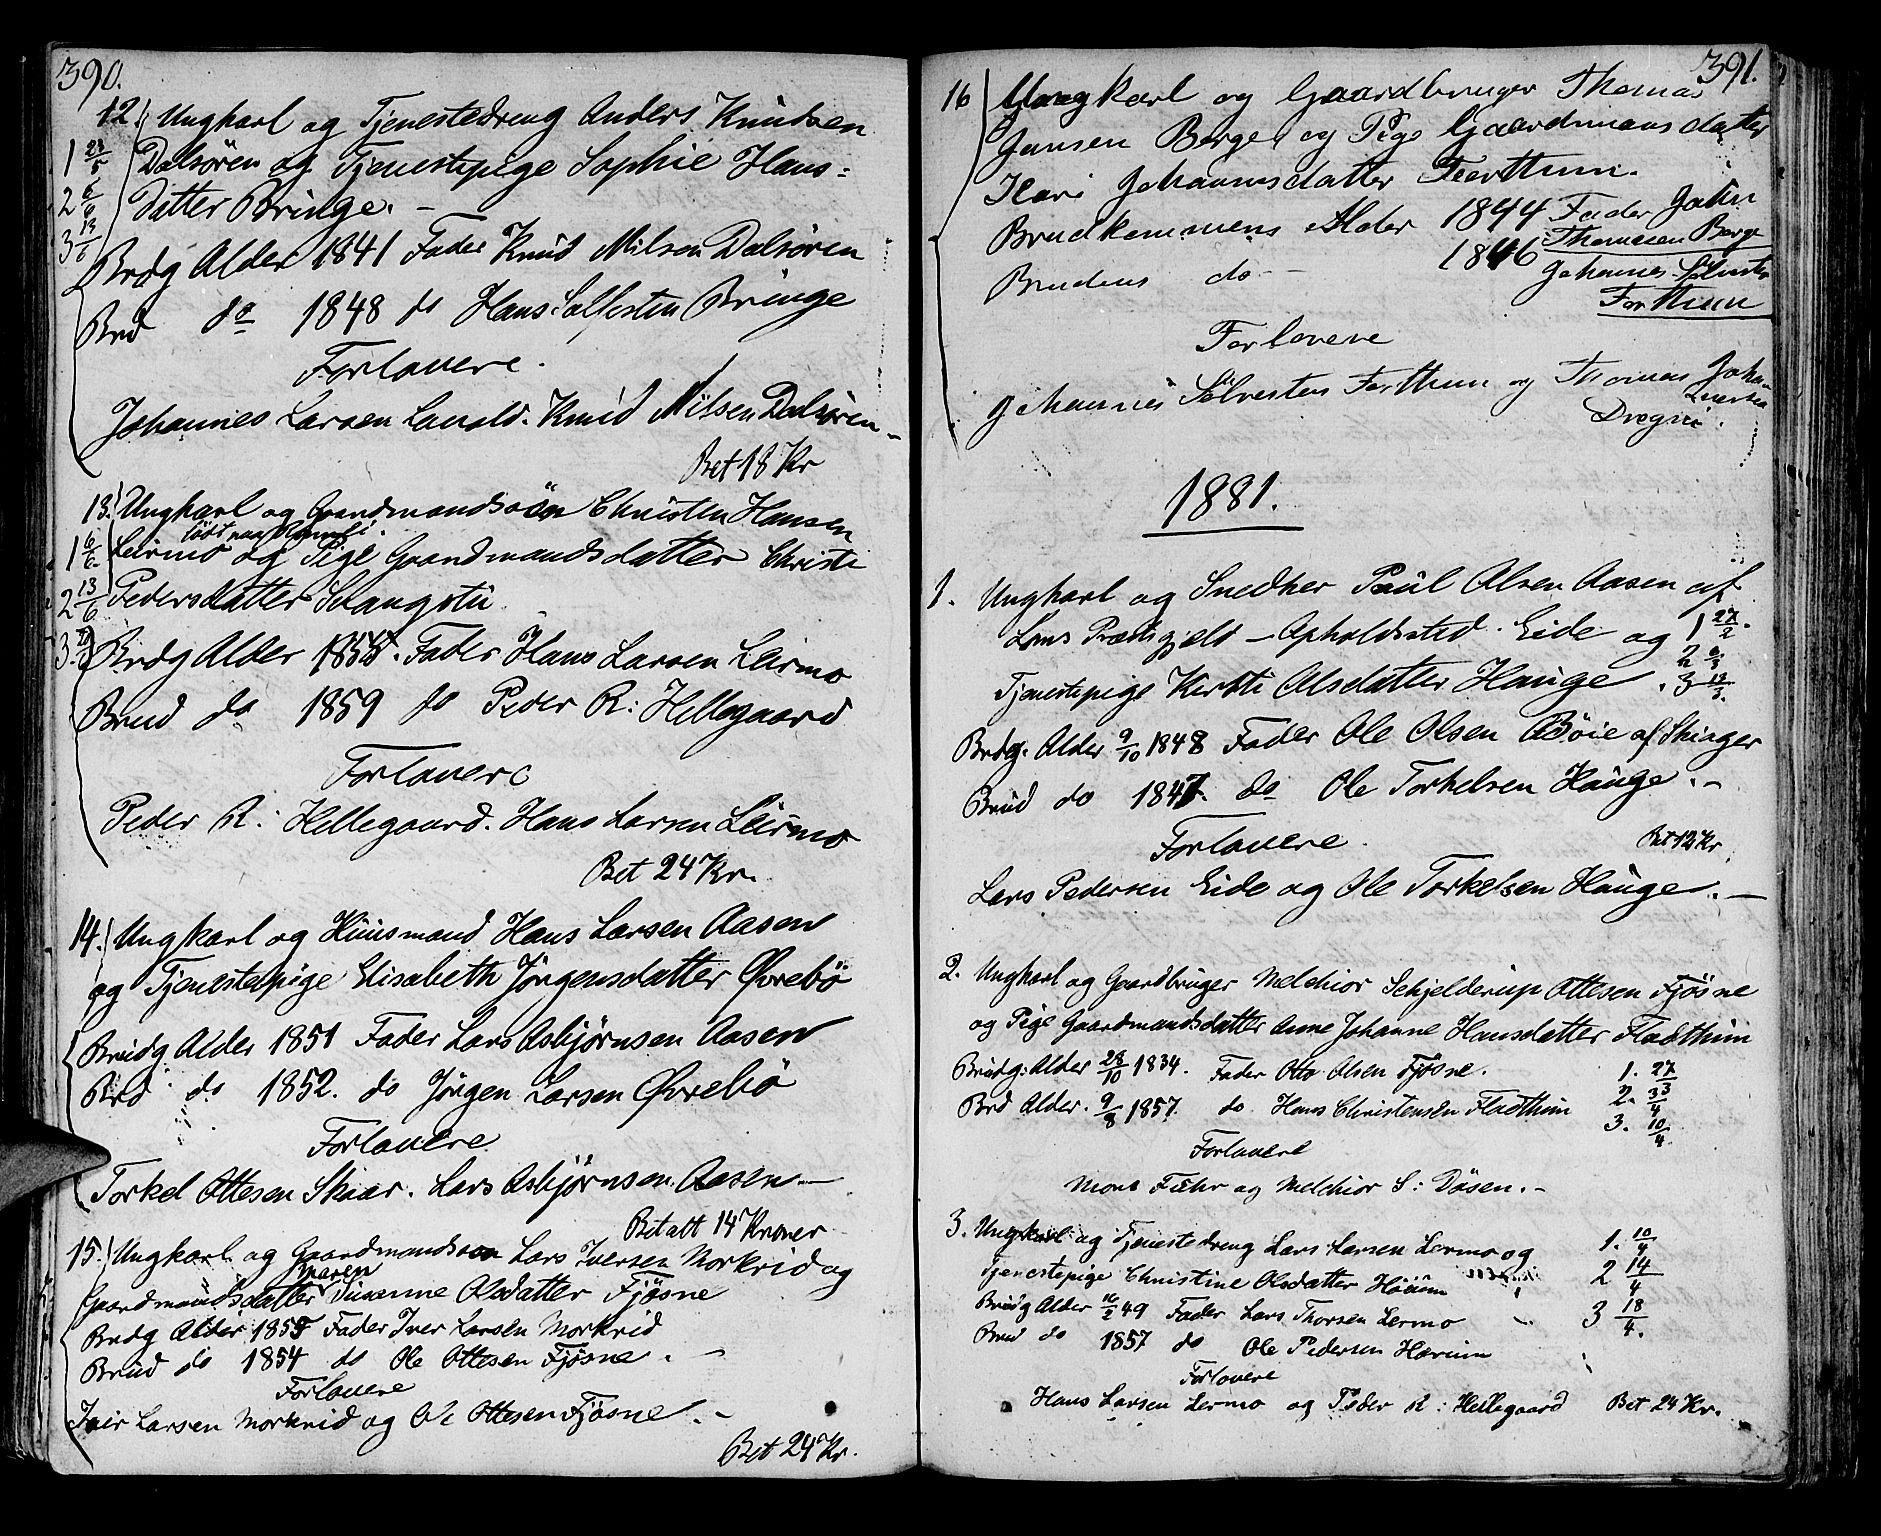 390.
12. Ungkarl og Tjenestedreng Anders Knudsen
1 23/5 Dalsøren og Tjenestepige Sophie Hans=
2 6/6 datter Bringe. -
3 13/6
Brdg Alder 1841 Fader Knud Nilsen Dalsøren
Brd do 1848 do Hans Salfesten Bringe
Forlovere.
Johannes Larsen Knud Nilsen Dalsøren -
Bet 18 Kr
13. Ungkarl og Gaardmandssøn Christen Hansen
1 6/6 Leirmo og Pige Gaardmandsdatter Christi
2 13/6 Pedersdatter
3
Brdg Alder Fader Hans Larsen Leirmo
Brud do 1859 do Peder R: Hellegaard
Forlovere
Peder R: Hellegaard. Hans Larsen Leirmo
Bet 24 Kr.
14. Ungkarl og Huusmand Hans Larsen Aasen
og Tjenestepige Elisabeth Jørgensdatter Øvrebö
Brudg Alder 1851 Fader Lars Asbjørnsen Aasen
Brd do 1852. do Jörgen Larsen Øvrebö
Forlovere
Torkel Ottesen Skiar. Lars Asbjørnsen Aasen. -
Betalt 14 Kroner
15. Ungkarl og Gaardmandssøn Lars Iversen Morkrid og
Maren
Gaardmandsdatter Susanne Olsdatter Fjøsne
Brdg Alder Fader Iver Larsen Morkrid
Brud do 1854 do Ole Ottesen Fjøsne. -
Forlovere
Iver Larsen Morkrid og Ole Ottesen Fjøsne. -
Bet 24 Kr.
391.
16 Ungkarl og Gaardbruger Thomas
Jansen Berge og Pige Gaardmansdatter
Kari Johannesdatter Forthun.
Brudkommens Alder 1844 Fader John
Thomesen Berge
Brudens do - 1846 Johannes Sølvesten
Forthun
Forlovere
Johannes Sølvesten Forthun og Thomas Johan
Dregni.
1881.
1. Ungkarl og Snedker Paul Olsen Aasen af
Loms Præstegjeld - Opholdssted. Eide og 1 27/2.
2 6/3
Tjenestepige Kersti Olsdatter Hauge . 3 13/3.
Brdg. Alder 9/10 1848 Fader Ole Olsen Böie af Skiager
Brud do 1847. do Ole Torkelsen Hauge. -
Forlovere. Bet 12 Kr
Lars Pedersen Eide og Ole Torkelsen Hauge. -
2. Ungkarl og Gaardbruger Melchior Schjelderup Ottesen Fjøsne
og Pige Gaardmandsdatter Anne Johanne Hansdatter Fladthun
Brudg: Alder 28/10 1834. Fader Otto Olsen Fjøsne. 1. 27/3
Brd Alder. 9/8 1857. do Hans Christensen Fladthun 2. 3/4
3. 10/4.
Forlovere
Mons Fuhr og Melchior S: Døsen. -
3. Ungkarl og Tjenestedreng Lars Larsen Lermo og 1. 10/4
Tjenestepige Christine Olsdatter 2 14/4
Brudg Alder 16/2 49 Fader Lars Thorsen Lermo 3 18/4.
Brud do 1857 do Ole Pedersen
Forlovere
Hans Larsen Lermo og Peder R: Hellegaard Bet 24 Kr.